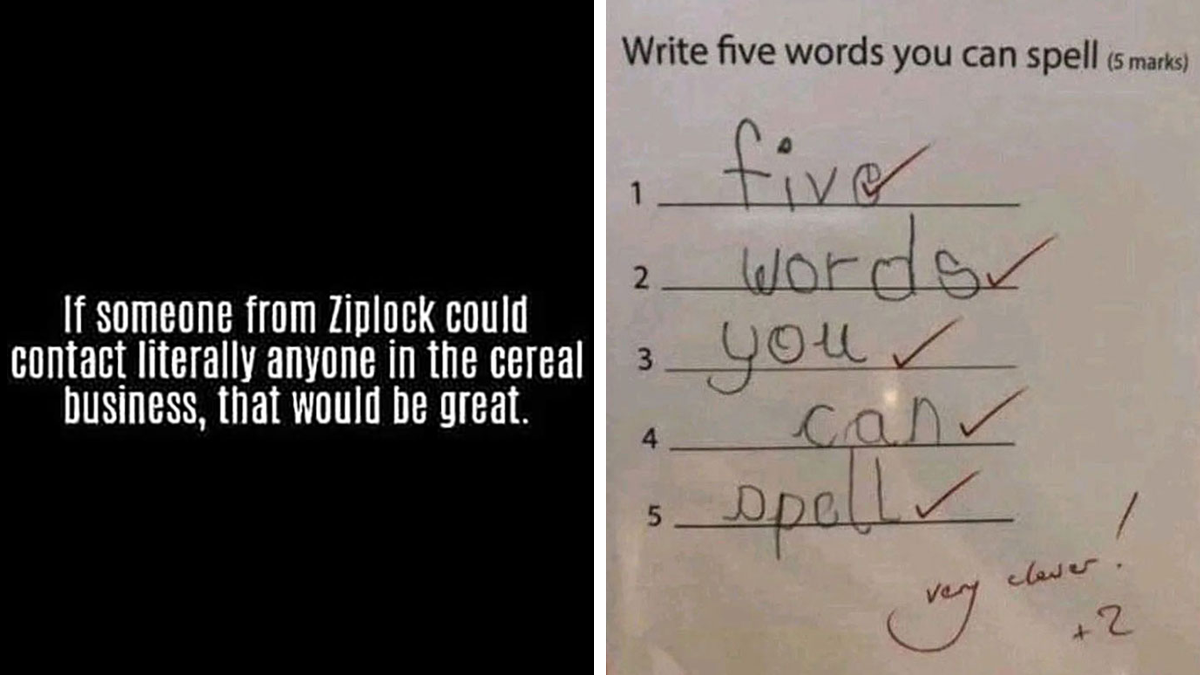 If someone from Ziplock could
contact literally anyone in the cereal
business, that would be great.
Write five words you can spell (5 marks)
1 five
2 words
3 you
4 can
5 spell
very clever!
+2